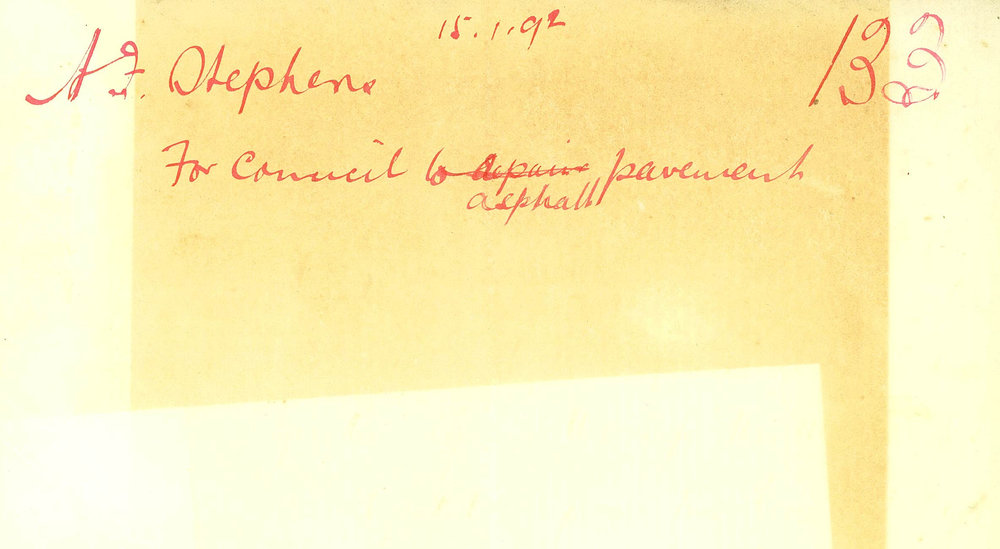 15.1.92
A F. Stephens 133
For Council to repair pavement
asphalt